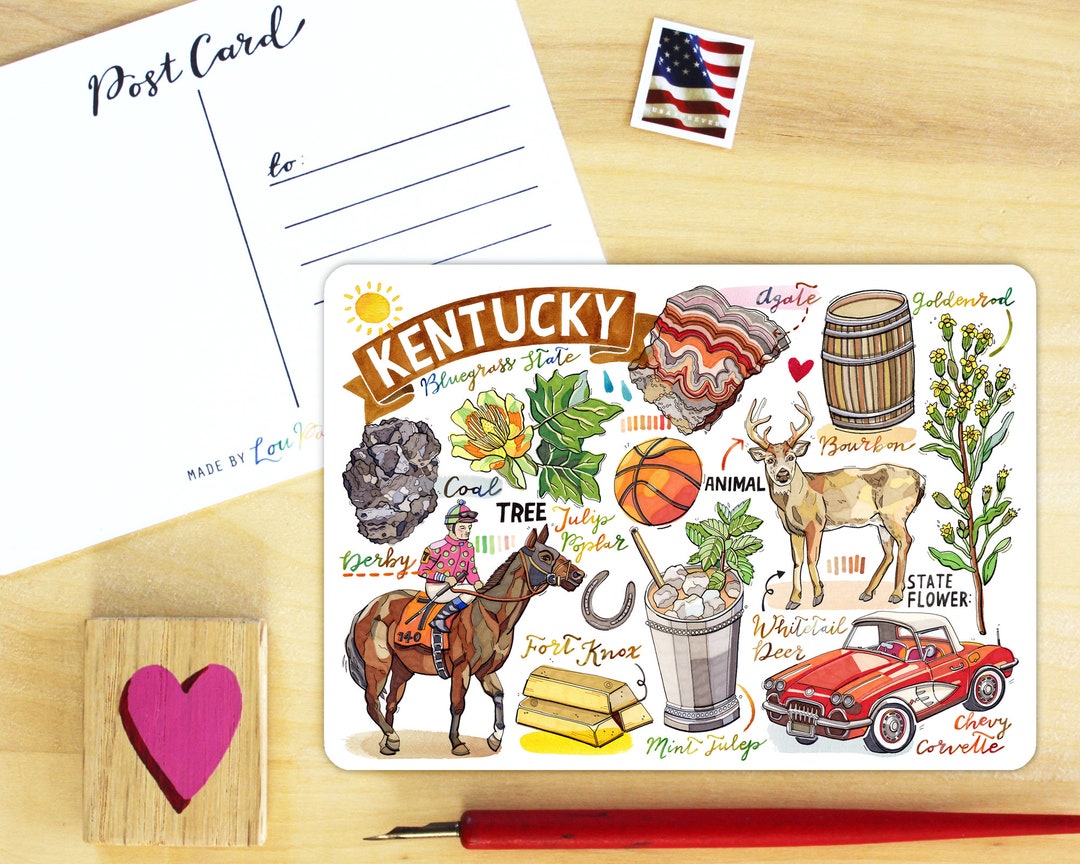 Post Card
to:
MADE BY Lou
USA FOREVER
KENTUCKY
Bluegrass State
Agate
Goldenrod
Bourbon
Coal
TREE
Tulip
Poplar
ANIMAL
Derby
140
STATE
FLOWER:
Whitetail
Deer
Fort Knox
Mint Julep
Chevy
Corvette